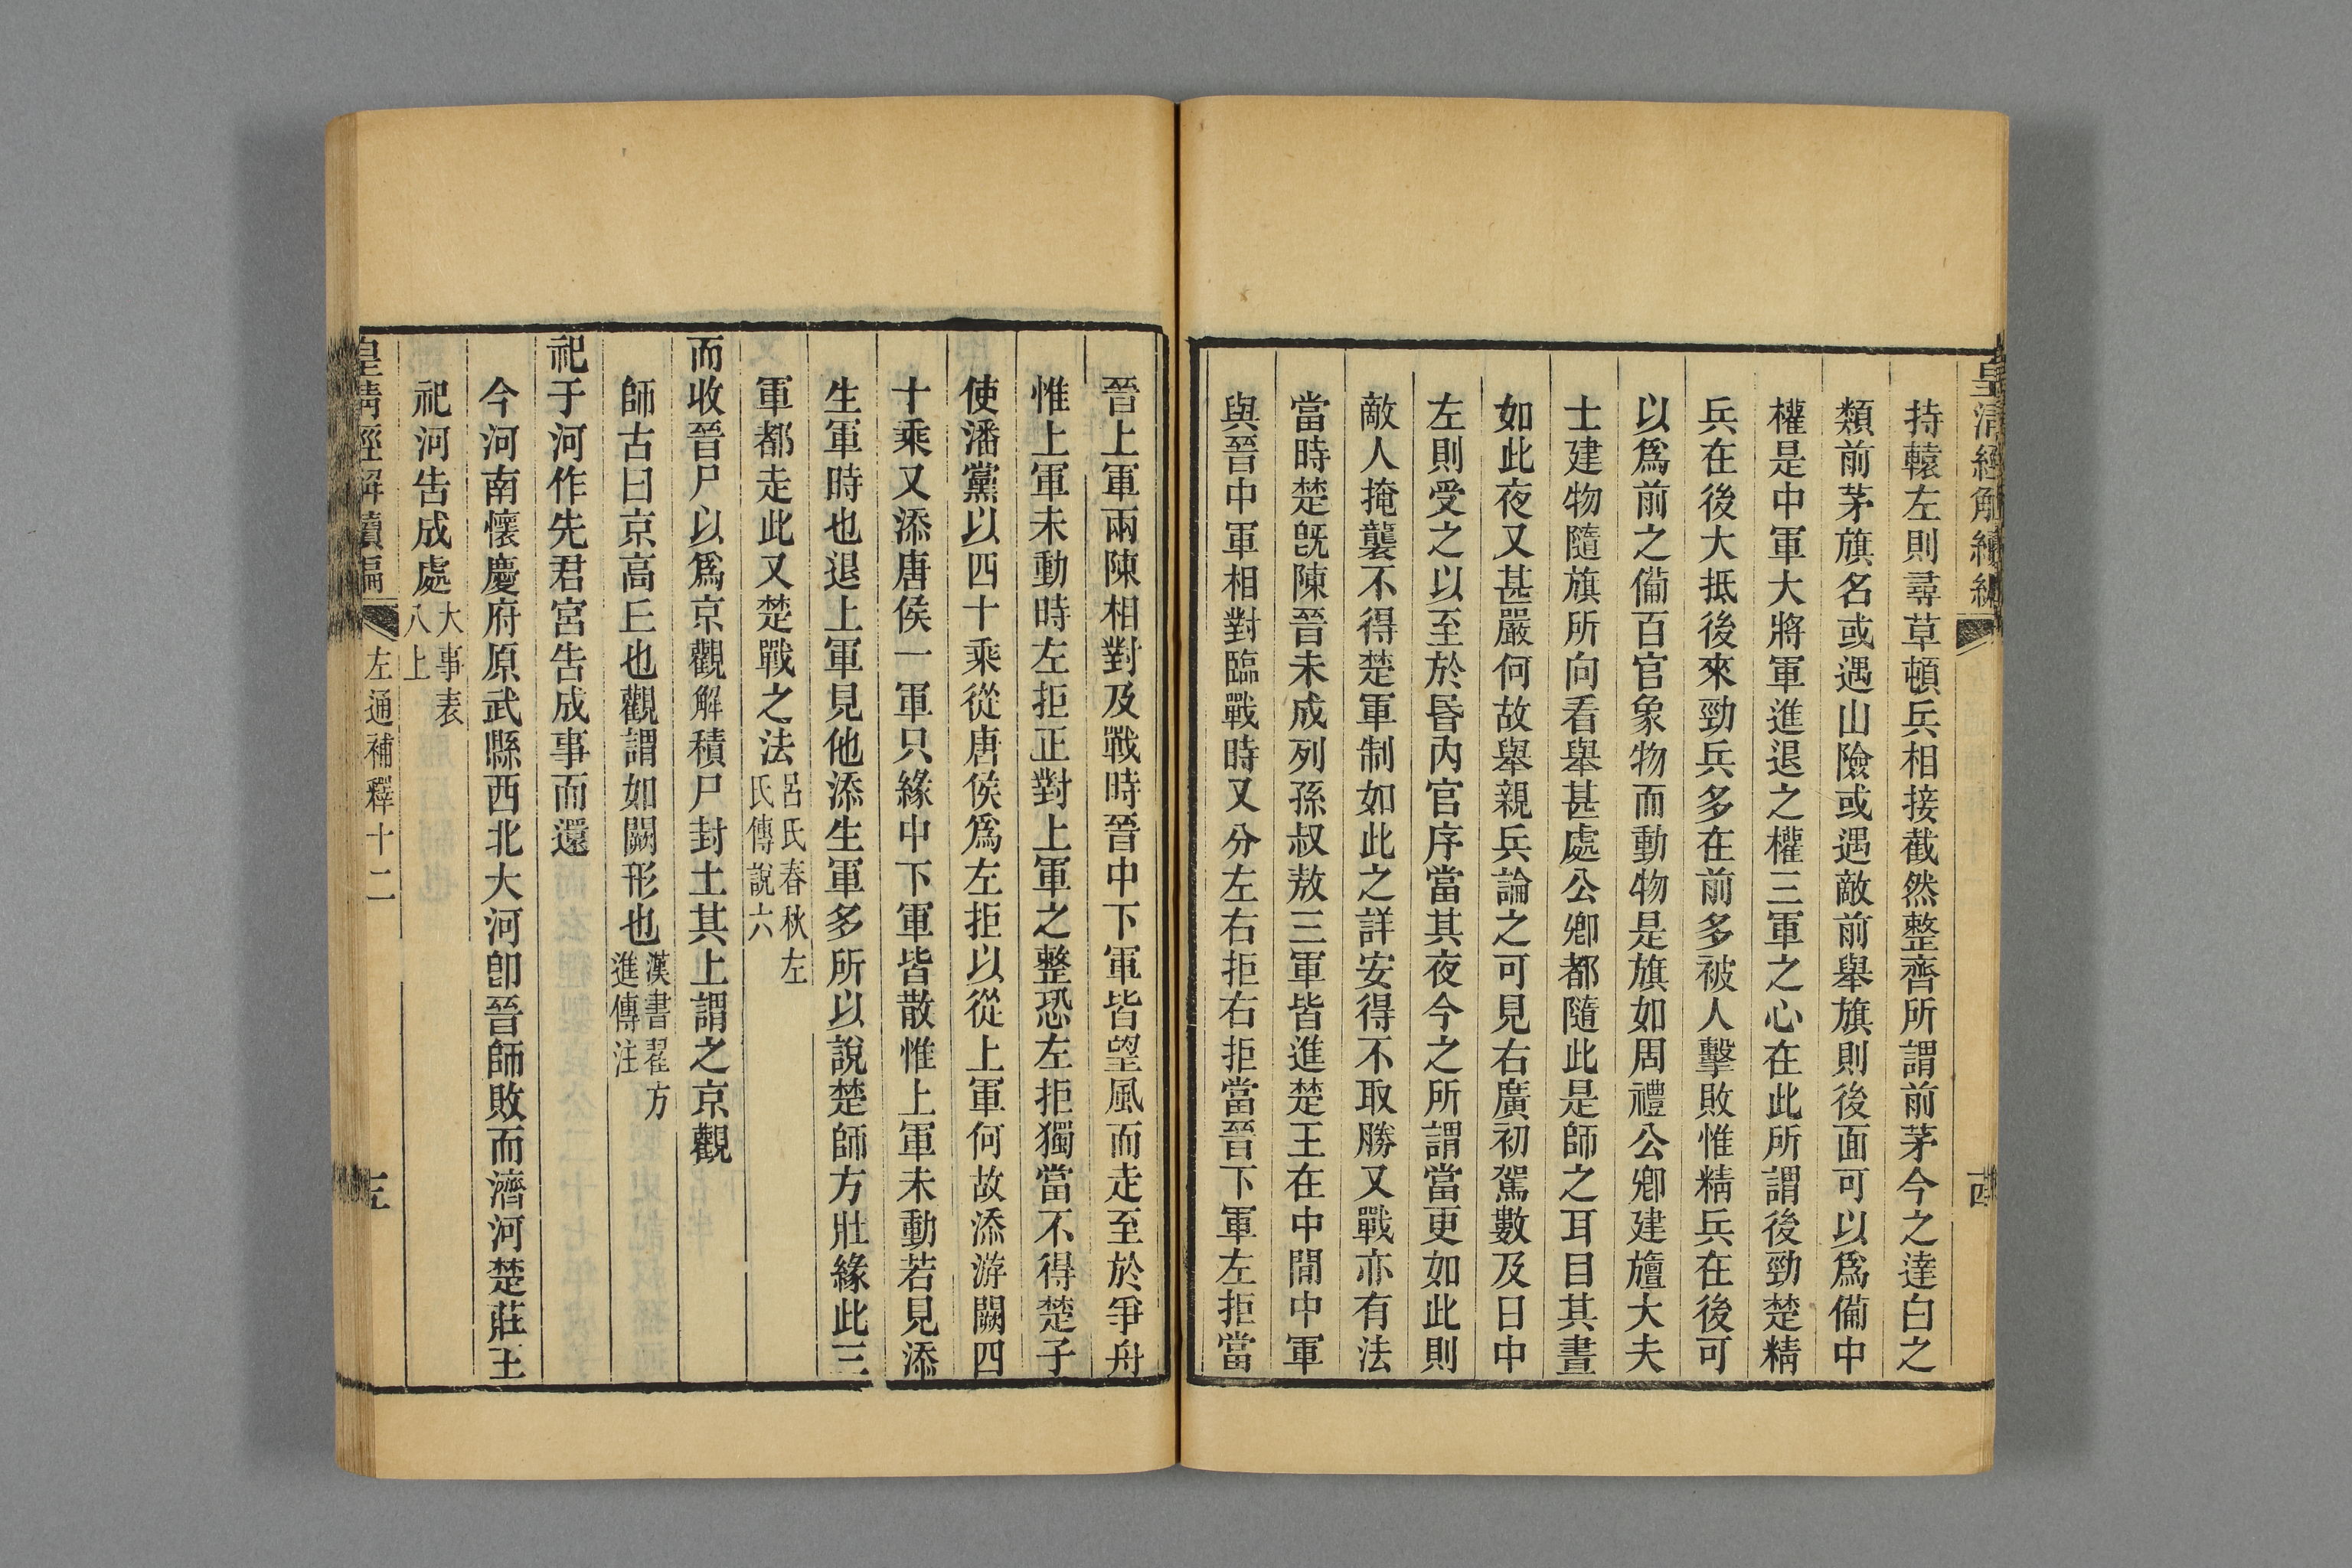 皇清經解續編
持轅左則尋草頓兵相接截然整齊所謂前茅今之達白之
類前茅旗名或遇山險或遇敵前舉旗則後面可以爲備中
權是中軍大將軍進退之權三軍之心在此所謂後勁楚精
兵在後大抵後來勁兵多在前多被人擊敗惟精兵在後可
以爲前之備百官象物而動物是旗如周禮公卿建旜大夫
士建物隨旗所向看舉甚處公卿都隨此是師之耳目其晝
如此夜又甚嚴何故舉親兵論之可見右廣初駕數及日中
左則受之以至於昏內官序當其夜今之所謂當更如此則
敵人掩襲不得楚軍制如此之詳安得不取勝又戰亦有法
當時楚旣陳晉未成列孫叔敖三軍皆進楚王在中閒中軍
與晉中軍相對臨戰時又分左右拒右拒當晉下軍左拒當
晉上軍兩陳相對及戰時晉中下軍皆望風而走至於爭舟
惟上軍未動時左拒正對上軍之整恐左拒獨當不得楚子
使潘黨以四十乘從唐侯爲左拒以從上軍何故添游闕四
十乘又添唐侯一軍只緣中下軍皆散惟上軍未動若見添
生軍時也退上軍見他添生軍多所以說楚師方壯緣此三
軍都走此又楚戰之法呂氏春秋左
氏傳說六
而收晉尸以爲京觀解積尸封土其上謂之京觀
師古曰京高丘也觀謂如闕形也漢書翟方
進傳注
祀于河作先君宮告成事而還
今河南懷慶府原武縣西北大河卽晉師敗而濟河楚莊王
祀河告成處大事表
八上
皇清經解續編
左通補釋十二